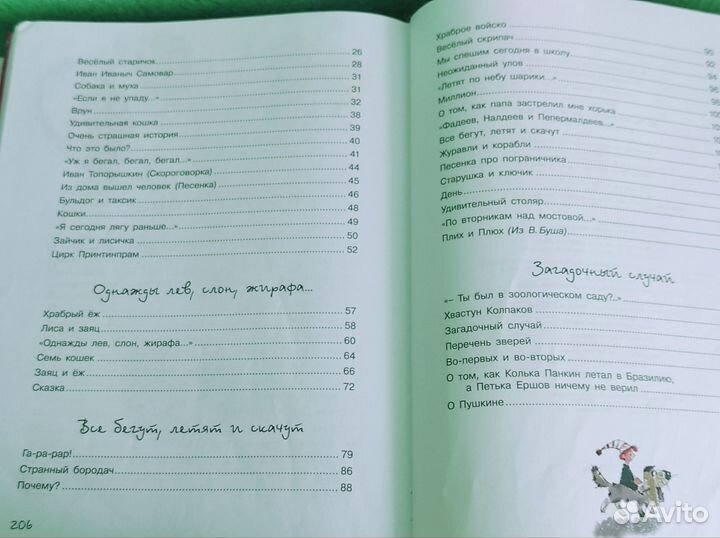 Весёлый старичок 26
Иван Иваныч Самовар 28
Собака и муха 31
«Если я не упаду...» 31
Врун 32
Удивительная кошка 38
Очень страшная история 39
Что это было? 40
«Уж я бегал, бегал, бегал...» 41
Иван Топорышкин (Скороговорка) 44
Из дома вышел человек (Песенка) 45
Бульдог и таксик 46
Кошки 49
«Я сегодня лягу раньше...» 49
Зайчик и лисичка 50
Цирк Принтинпрам 52
Однажды лев, слон, жирафа...
Храбрый ёж 57
Лиса и заяц 58
«Однажды лев, слон, жирафа...» 60
Семь кошек 64
Заяц и ёж 66
Сказка 72
Все бегут, летят и скачут
Га-ра-рар! 79
Странный бородач 86
Почему? 88
206
Храброе войско
Весёлый скрипач
Мы спешим сегодня в школу
Неожиданный улов
«Летят по небу шарики...»
Миллион
О том, как папа застрелил мне хорька
«Фадеев, Калдеев и Пепермалдеев...»
Все бегут, летят и скачут
Журавли и корабли
Песенка про пограничника
Старушка и ключик
День
Удивительный столяр
«По вторникам над мостовой...»
Плих и Плюх (Из В. Буша)
Загадочный случай
«– Ты был в зоологическом саду?..»
Хвастун Колпаков
Загадочный случай
Перечень зверей
Во-первых и во-вторых
О том, как Колька Панкин летал в Бразилию,
а Петька Ершов ничему не верил
О Пушкине
Avito